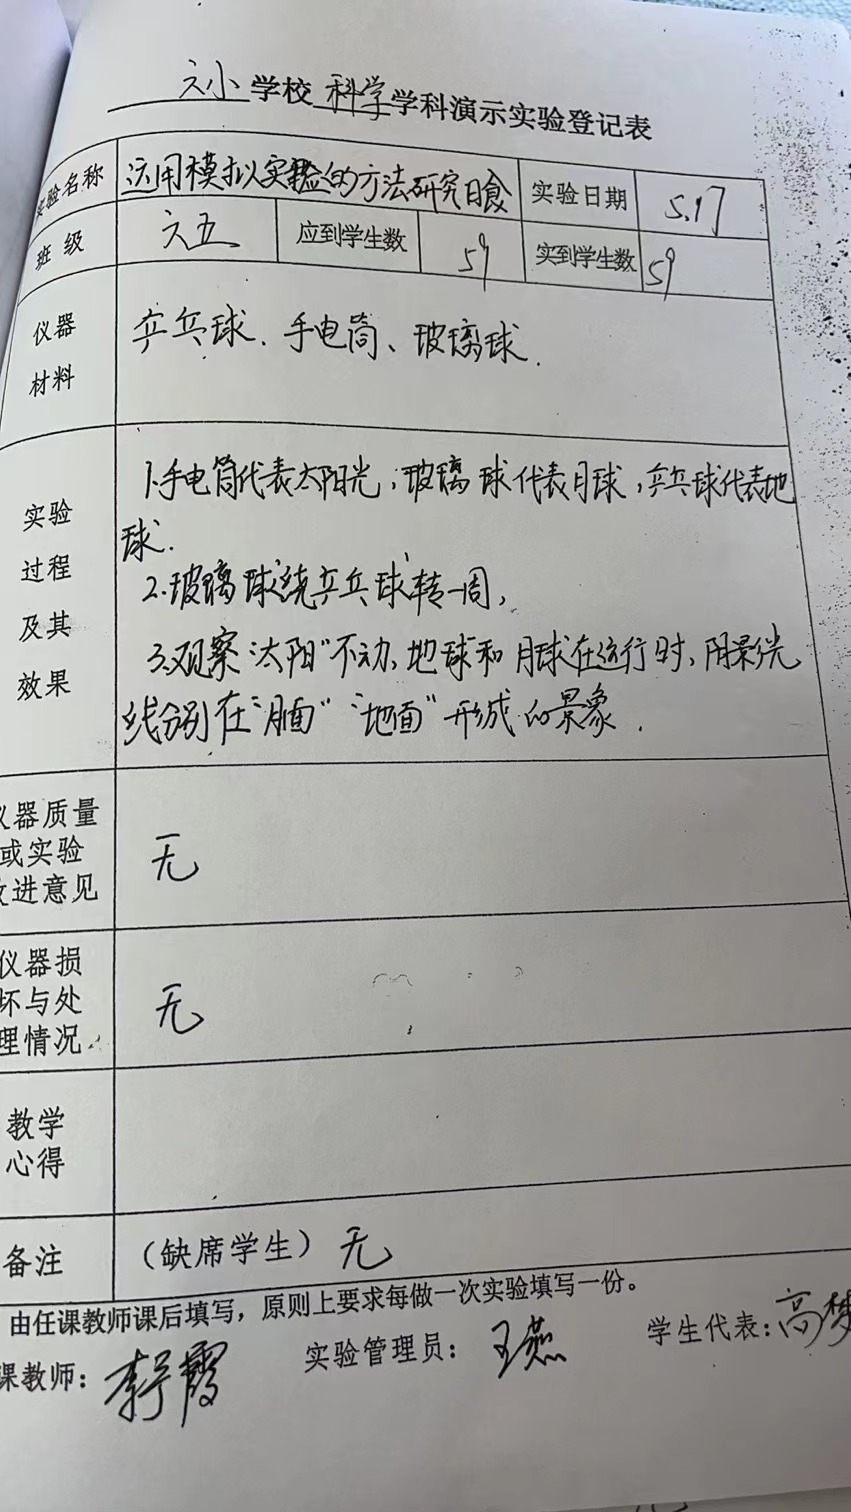 六小学校科学学科演示实验登记表
实验名称 运用模拟实验的方法研究日食 实验日期 5.17
班级 六五 应到学生数 59 实到学生数 59
仪器
材料
乒乓球、手电筒、玻璃球.
实验
过程
及其
效果
1.手电筒代表太阳光,玻璃球代表月球,乒乓球代表地
球.
2.玻璃球绕乒乓球转一周,
3.观察“太阳”不动,地球和月球在运行时,阴影光
线分别在“月面”“地面”形成的景象.
仪器质量
或实验
改进意见
无
仪器损
坏与处
理情况
无
教学
心得
备注 (缺席学生) 无
由任课教师课后填写,原则上要求每做一次实验填写一份。
课教师: 霞 实验管理员: 王燕 学生代表: 高梦